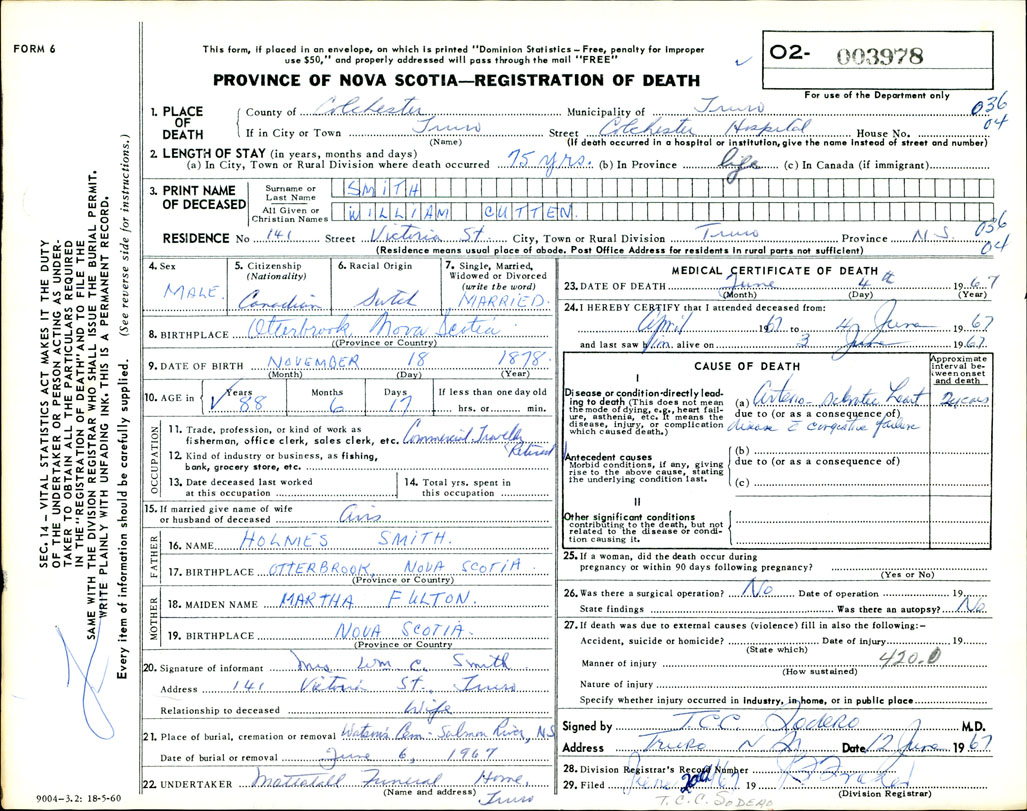 FORM 6
This form, if placed in an envelope, on which is printed "Dominion Statistics – Free, penalty for Improper
use $50," and properly addressed will pass through the mail "FREE"
PROVINCE OF NOVA SCOTIA—REGISTRATION OF DEATH
02- 003978
For use of the Department only
036
04
1. PLACE OF DEATH
County of Colchester Municipality of Truro
If in City or Town Truro Street Colchester Hospital House No.
(Name) (If death occurred in a hospital or institution, give the name instead of street and number)
2. LENGTH OF STAY (in years, months and days)
(a) In City, Town or Rural Division where death occurred 75 yrs. (b) In Province life (c) In Canada (if immigrant)
3. PRINT NAME OF DECEASED
Surname or Last Name SMITH
All Given or Christian Names WILLIAM CUTTEN
RESIDENCE No 141 Street Victoria St. City, Town or Rural Division Truro Province N.S. 036
04
(Residence means usual place of abode. Post Office Address for residents in rural parts not sufficient)
4. Sex MALE
5. Citizenship (Nationality) Canadian
6. Racial Origin Dutch
7. Single, Married, Widowed or Divorced (write the word) MARRIED.
8. BIRTHPLACE Otterbrook Nova Scotia
(Province or Country)
9. DATE OF BIRTH NOVEMBER 18 1878
(Month) (Day) (Year)
10. AGE in Years 88 Months 6 Days 17 If less than one day old hrs. or min.
OCCUPATION
11. Trade, profession, or kind of work as
fisherman, office clerk, sales clerk, etc. Commercial Traveller
Retired
12. Kind of industry or business, as fishing,
bank, grocery store, etc.
13. Date deceased last worked
at this occupation
14. Total yrs. spent in
this occupation
15. If married give name of wife
or husband of deceased Avis
FATHER
16. NAME HOLMES SMITH.
17. BIRTHPLACE OTTERBROOK NOVA SCOTIA
(Province or Country)
MOTHER
18. MAIDEN NAME MARTHA FULTON.
19. BIRTHPLACE NOVA SCOTIA.
(Province or Country
20. Signature of informant Mrs Wm C. Smith
Address 141 Victoria St. Truro
Relationship to deceased Wife
21. Place of burial, cremation or removal Watson's Cem - Salmon River, N.S
Date of burial or removal June 6, 1967
22. UNDERTAKER Mattatall Funeral Home
(Name and address) Truro
MEDICAL CERTIFICATE OF DEATH
23. DATE OF DEATH June 4th 1967
(Month) (Day) (Year)
24. I HEREBY CERTIFY that I attended deceased from:
April 1967 to 4 June 1967
and last saw him alive on 3 June 1967.
CAUSE OF DEATH
Approximate interval between onset and death
I
Disease or condition directly leading to death (This does not mean the mode of dying, e.g., heart failure, asthenia, etc. It means the disease, injury, or complication which caused death.)
(a) Arterio Sclerotic Heart 2 years
due to (or as a consequence of)
disease c congestive failure
Antecedent causes
Morbid conditions, if any, giving rise to the above cause, stating the underlying condition last.
(b)
due to (or as a consequence of)
(c)
II
Other significant conditions
contributing to the death, but not related to the disease or condition causing it.
25. If a woman, did the death occur during
pregnancy or within 90 days following pregnancy?
(Yes or No)
26. Was there a surgical operation? No Date of operation 19
State findings Was there an autopsy? No.
27. If death was due to external causes (violence) fill in also the following:–
Accident, suicide or homicide? Date of injury 19
(State which)
Manner of injury 420.0
(How sustained)
Nature of injury
Specify whether injury occurred in Industry, in home, or in public place
Signed by T.C.C. Sodero M.D.
Address Truro N S Date 12 June 1967
28. Division Registrar's Record Number
29. Filed 19
(Division Registrar)
T.C.C. SODERO
SEC. 14 – VITAL STATISTICS ACT MAKES IT THE DUTY
OF THE UNDERTAKER OR PERSON ACTING AS UNDER-
TAKER TO OBTAIN ALL THE PARTICULARS REQUIRED
IN THE "REGISTRATION OF DEATH" AND TO FILE THE
SAME WITH THE DIVISION REGISTRAR WHO SHALL ISSUE THE BURIAL PERMIT.
WRITE PLAINLY WITH UNFADING INK. THIS IS A PERMANENT RECORD.
Every item of information should be carefully supplied. (See reverse side for instructions.)
9004-3.2: 18-5-60